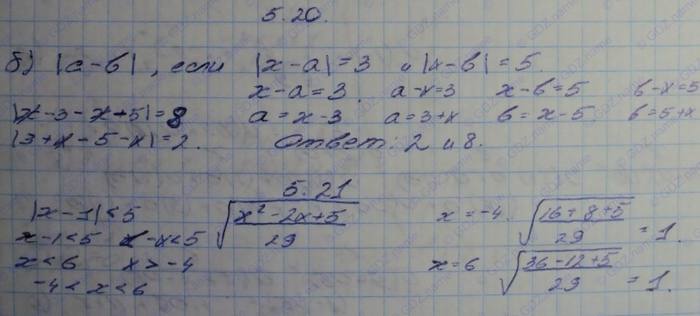 5.20.
б) |a-b|, если |x-a|=3 и |x-b|=5
x-a=3 a-x=3 x-b=5 b-x=5
|x-3-x+5|=8 a=x-3 a=3+x b=x-5 b=5+x
|3+x-5-x|=2. Ответ: 2 и 8.
5.21
|x-1|<5 √(x²-2x+5)/29 x=-4. √(16+8+5)/29 =1.
x-1<5 1-x<5
x<6 x>-4 x=6 √(36-12+5)/29 =1.
-4<x<6